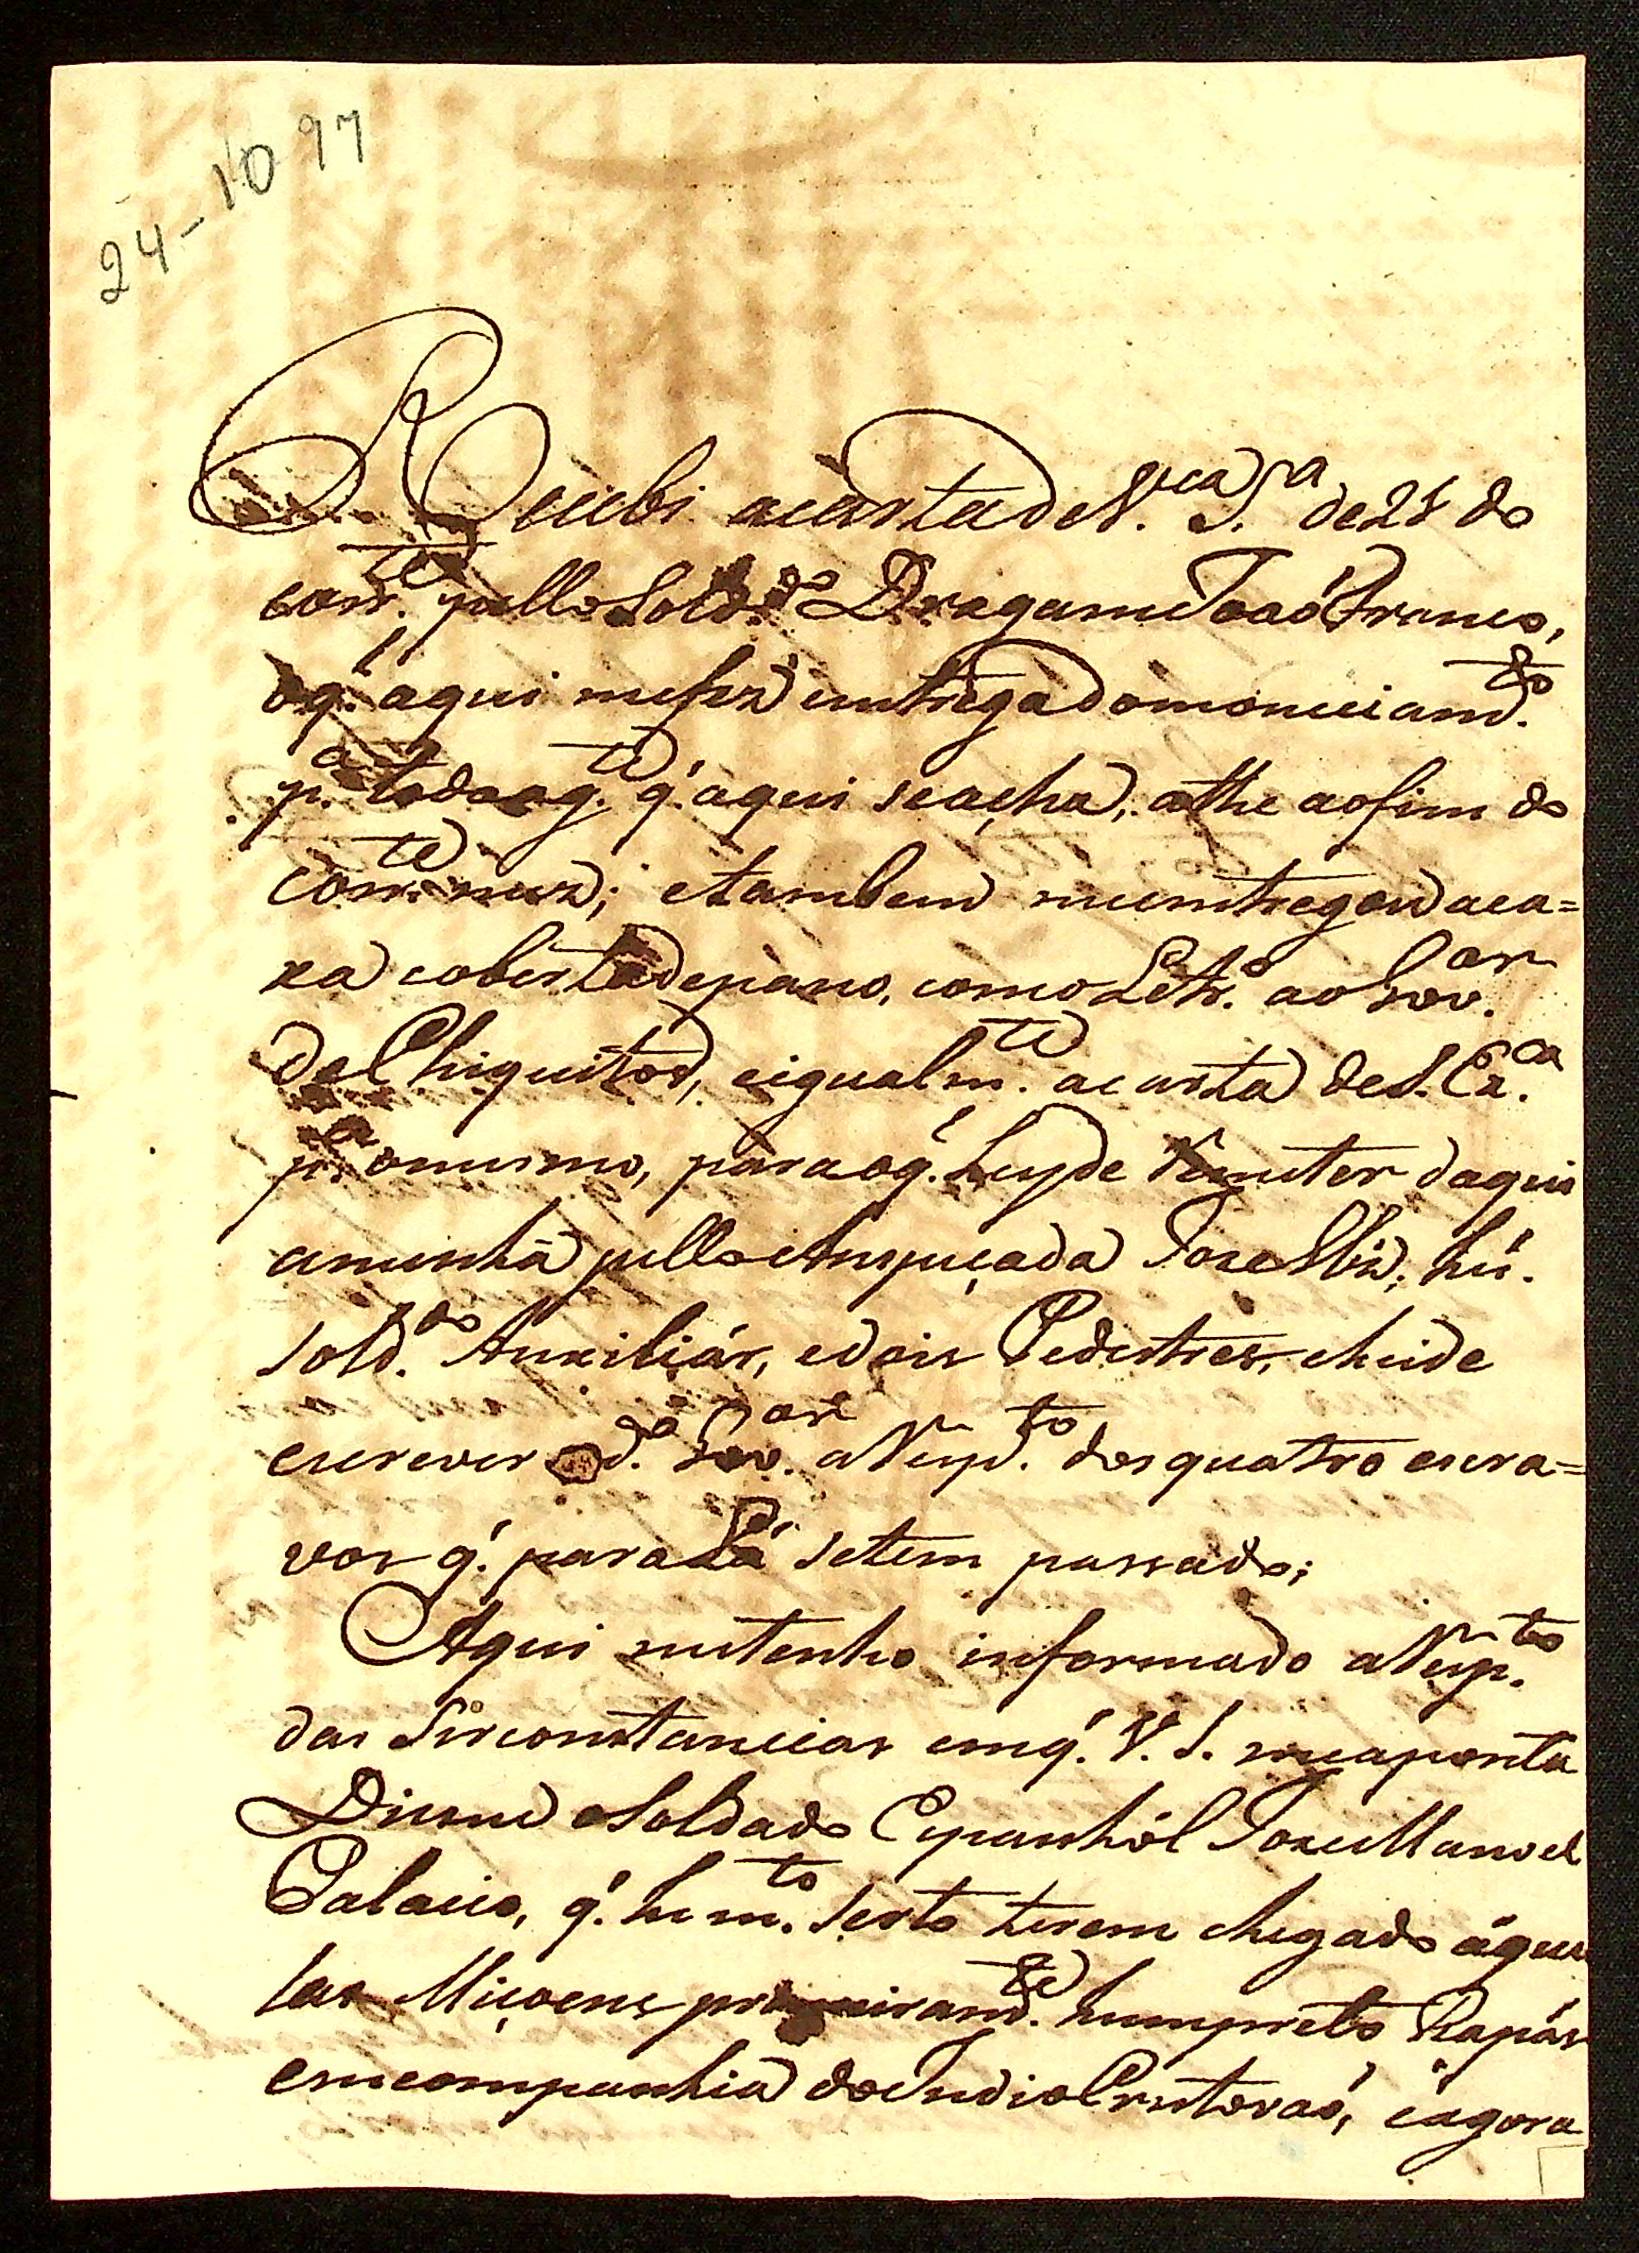 24-10 97
Recebi acarta de V.ca S.a de 21 do
corr.te pello Sold.do Dragam Joaó Franco,
oq̃. aqui mefez entrega domoniciam.to
p.a toda ag.te q̃. aqui seacha, athe aofim do
corr.te mez; etambem meentregou aca=
xa coberta depano, como Letr.o ao Gov.or
de Chiquitos, eigualm.te acarta de S. Ex.ca
p.a omesmo, para oq̃. hey de Remeter daqui
amenhã pello Anspeçada Joze Miz̃, hú
Sold.do Auxiliár, edois Pedestres, eheide
escrever ao d.o Gov.or aResp.to dos quatro escra=
vos q̃. para Lá setem passado;
Aqui metenho informado aResp.to
das Sirconstancias emq̃. V. S. meaponta
Disme oSoldado Espanhól Joze Manoel
Palacio, q̃. he m.to Serto terem chegado áque
las Miçoens primeiram.te humpreto Rapás
emcompanhia do Indio Crutoraó, eágora